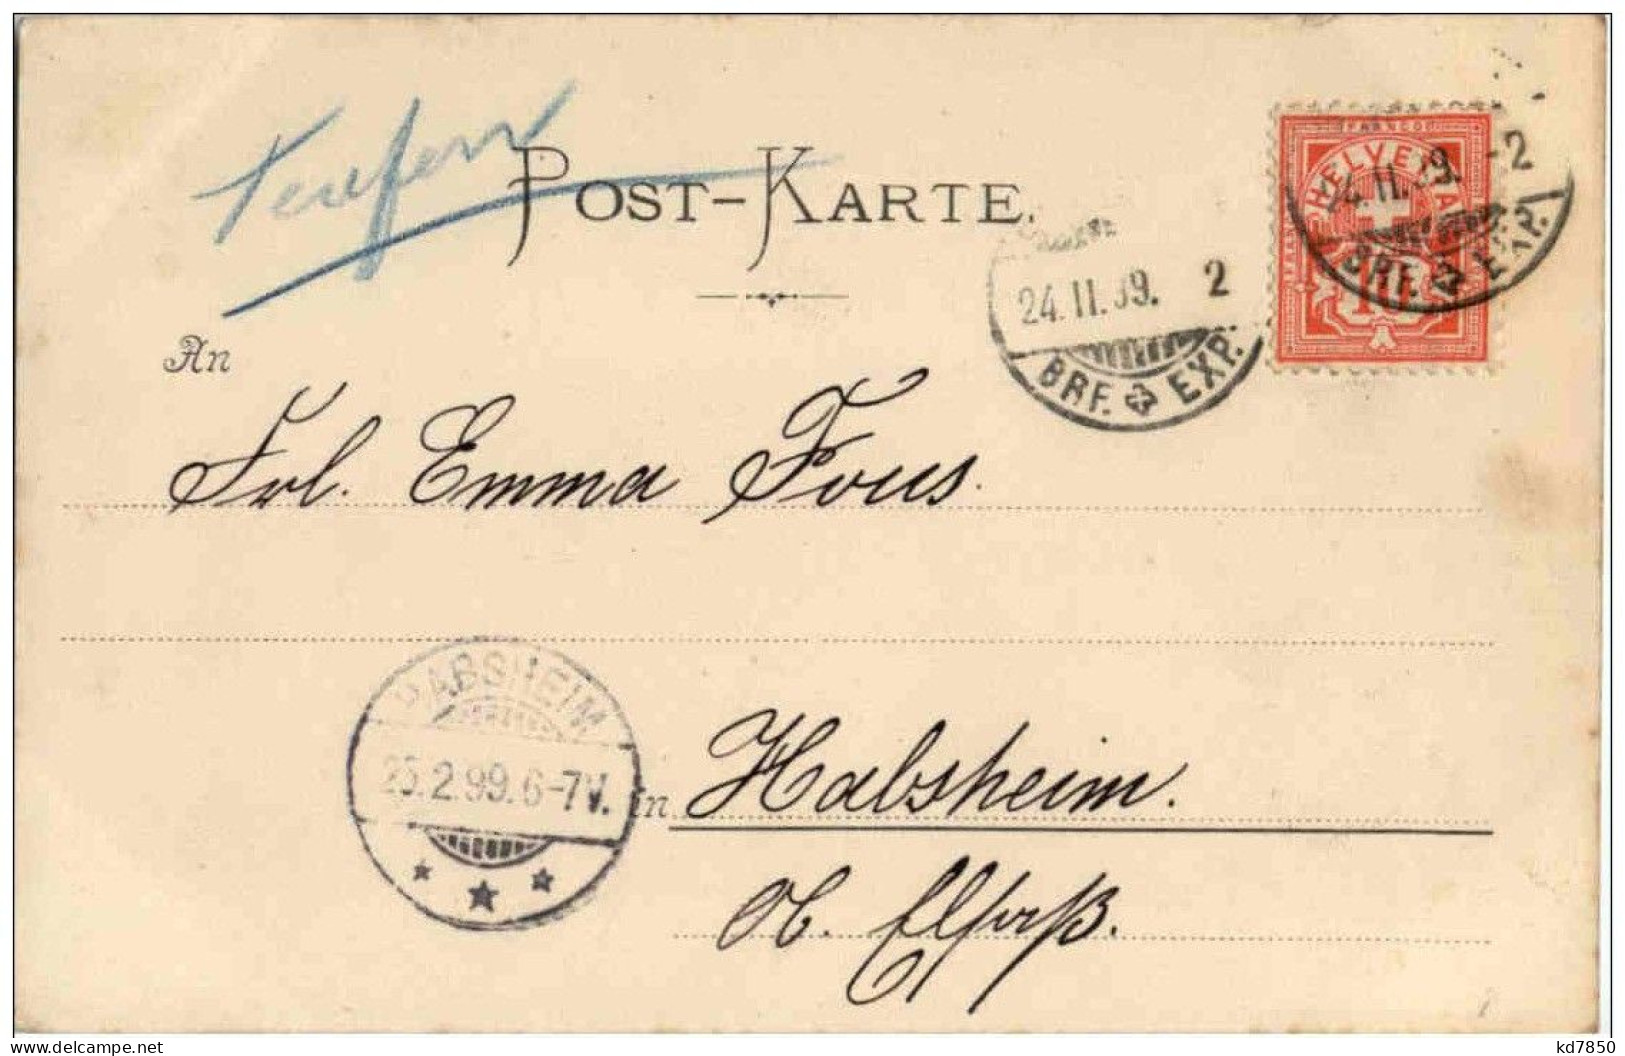 Teufen
POST-KARTE.
FRANCO
HELVETIA
24.II.99.-2
BRF. EXP.
10
24.II.99. 2
BRF. EXP.
An
Frl. Emma Fous.
HABSHEIM
25.2.99.6-7V.
in Habsheim.
Ob. Elsaß.
delcampe.net
kd7850